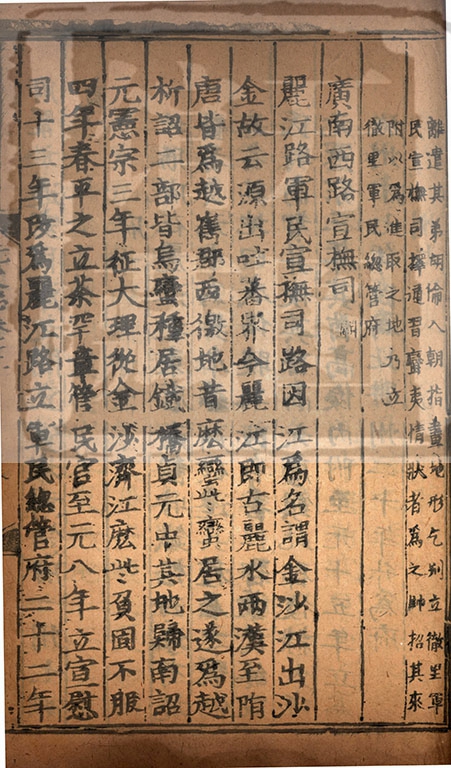 離遣其弟胡倫入朝指畫地形乞別立徹里軍
民宣撫司擇通習蠻夷情狀者為之帥招其來
附以為進取之地乃立
徹里軍民總管府
廣南西路宣撫司 闕
麗江路軍民宣撫司路因江為名謂金沙江出沙
金故云源出吐蕃界今麗江即古麗水兩漢至隋
唐皆為越嶲郡西徼地昔麽蠻些蠻居之遂為越
析詔二部皆烏蠻種居鐵橋貞元中其地歸南詔
元憲宗三年征大理從金沙濟江麽些負固不服
四年春平之立茶罕章管民官至元八年立宣慰
司十三年改為麗江路立軍民總管府二十二年